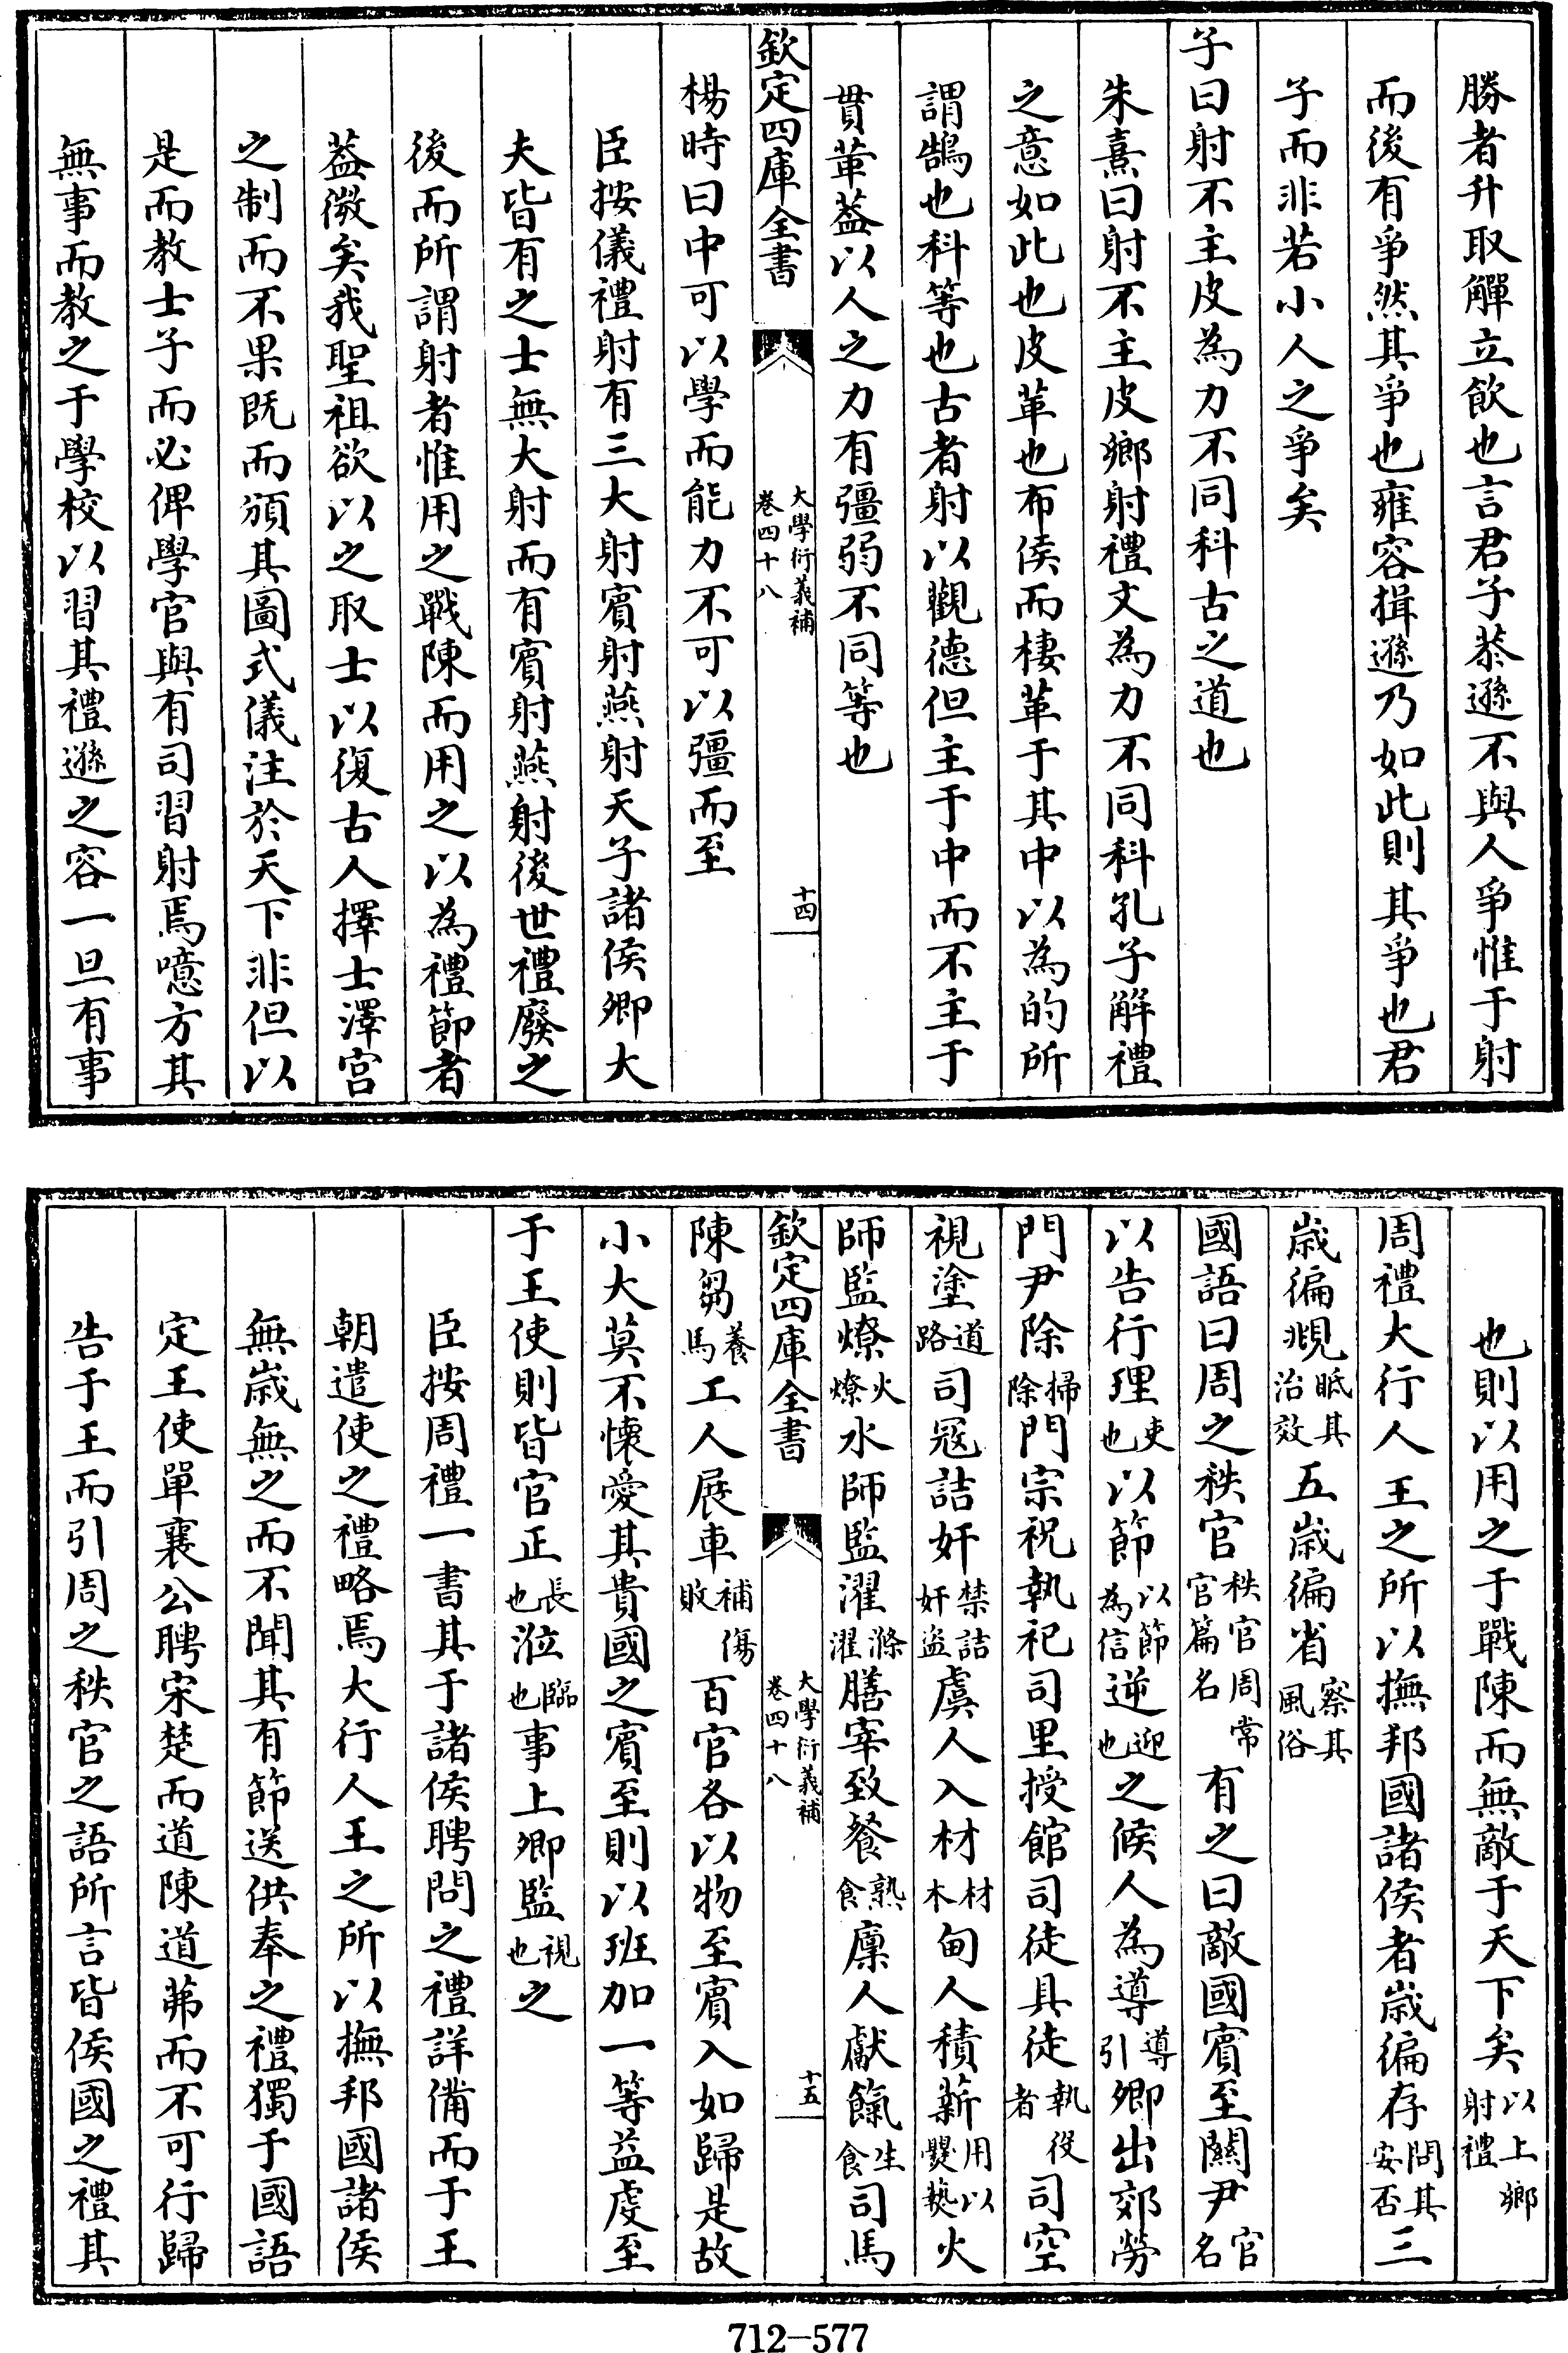 勝者升取觶立飲也言君子恭遜不與人爭惟于射
而後有爭然其爭也雍容揖遜乃如此則其爭也君
子而非若小人之爭矣
子曰射不主皮為力不同科古之道也
朱熹曰射不主皮鄉射禮文為力不同科孔子解禮
之意如此也皮革也布侯而棲革于其中以為的所
謂鵠也科等也古者射以觀德但主于中而不主于
貫革葢以人之力有彊弱不同等也
欽定四庫全書
大學衍義補
卷四十八
十四
楊時曰中可以學而能力不可以彊而至
臣按儀禮射有三大射賓射燕射天子諸侯卿大
夫皆有之士無大射而有賓射燕射後世禮廢之
後而所謂射者惟用之戰陳而用之以為禮節者
葢微矣我聖祖欲以之取士以復古人擇士澤宮
之制而不果既而頒其圖式儀注於天下非但以
是而教士子而必俾學官與有司習射焉噫方其
無事而教之于學校以習其禮遜之容一旦有事
也則以用之于戰陳而無敵于天下矣以上鄉射禮
周禮大行人王之所以撫邦國諸侯者歲徧存問其安否三
歲徧覜眂其治效五歲徧省察其風俗
國語曰周之秩官秩官周常官篇名有之曰敵國賓至關尹官名
以告行理使也以節以節為信逆迎也之候人為導導引卿出郊勞
門尹除掃除門宗祝執祀司里授館司徒具徒執役者司空
視塗道路司寇詰奸禁詰奸盜虞人入材材木甸人積薪用以爨𤍠火
師監燎火燎水師監濯滌濯膳宰致餐熟食廩人獻餼生食司馬
欽定四庫全書
大學衍義補
卷四十八
十五
陳芻養馬工人展車補傷敗百官各以物至賓入如歸是故
小大莫不懷愛其貴國之賓至則以班加一等益虔至
于王使則皆官正長也涖臨也事上卿監視也之
臣按周禮一書其于諸侯聘問之禮詳備而于王
朝遣使之禮略焉大行人王之所以撫邦國諸侯
無歲無之而不聞其有節送供奉之禮獨于國語
定王使單襄公聘宋楚而道陳道茀而不可行歸
告于王而引周之秩官之語所言皆侯國之禮其
712-577